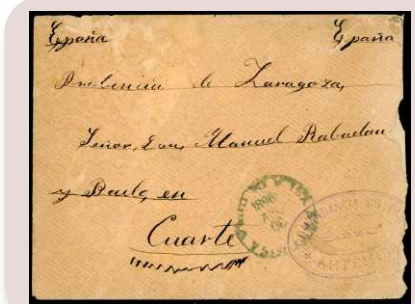 España España
Probincia de Zaragoza,
Señor, Don, Manuel Rabadan
y Baile, en
Cuarte
1896